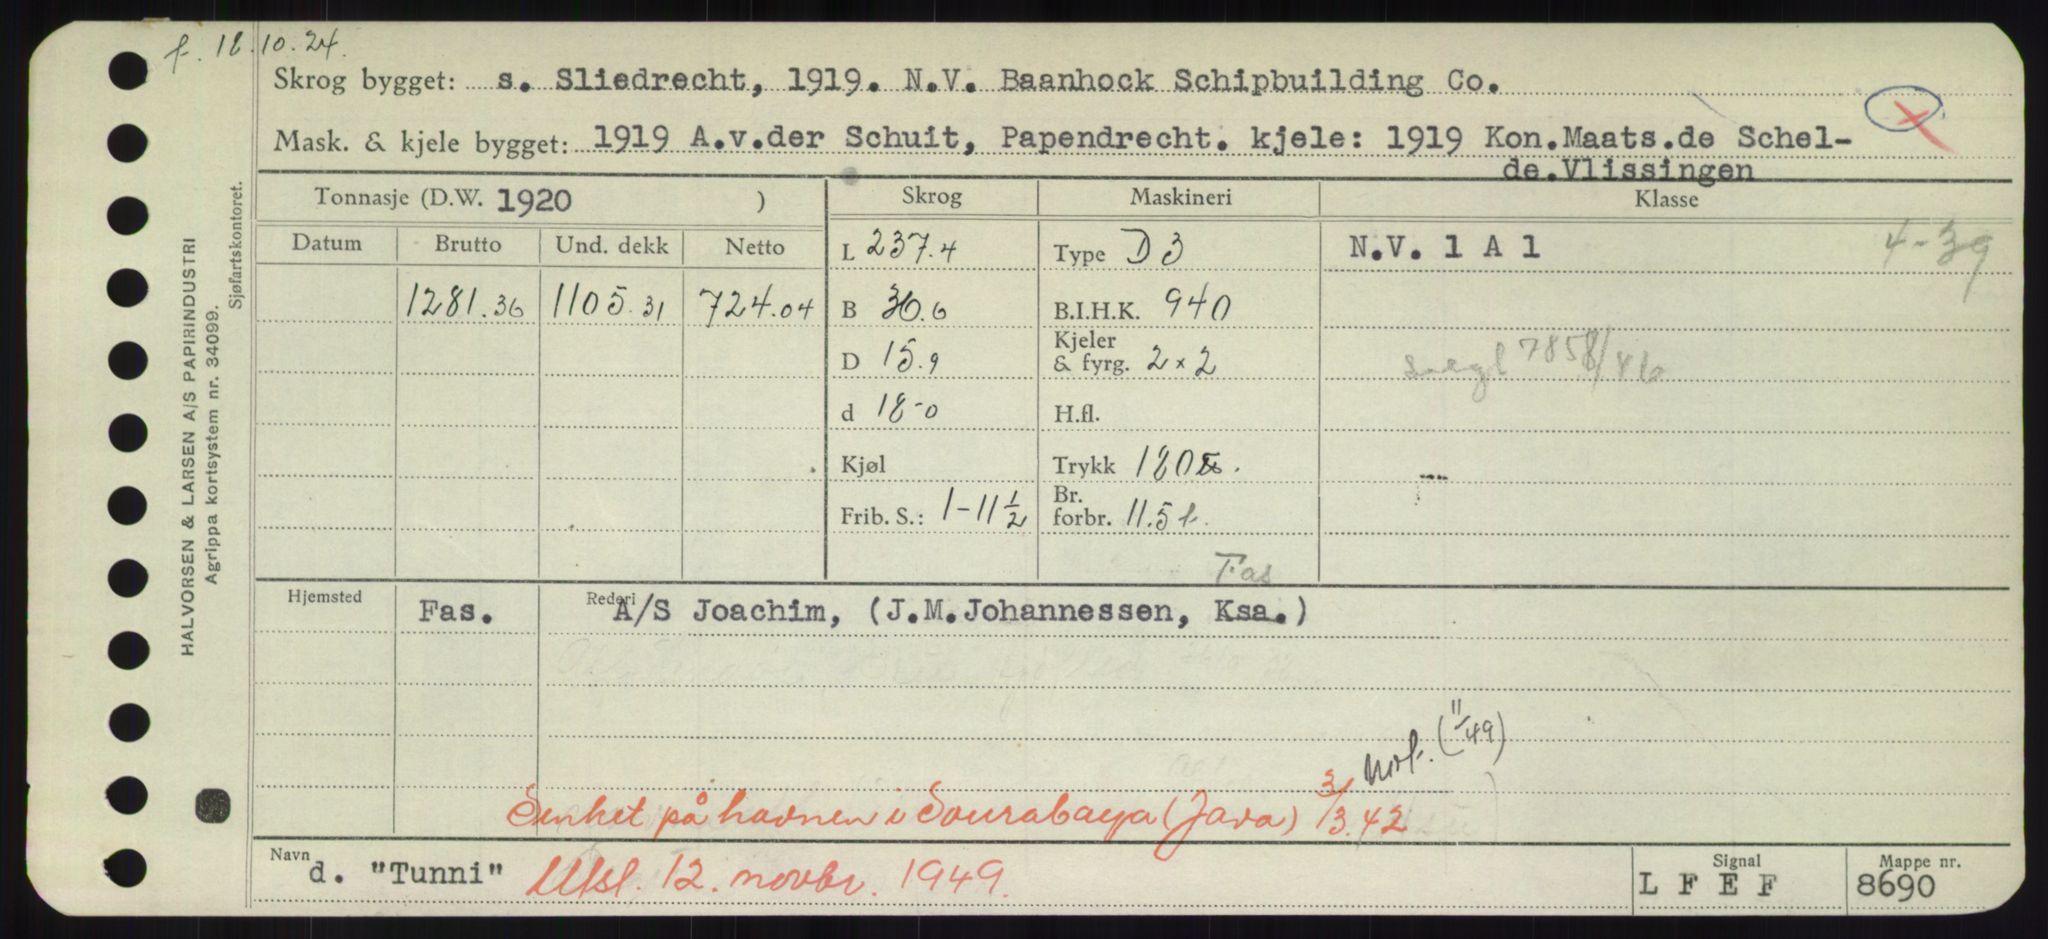 f. 18.10.24.
Skrog bygget: s. Sliedrecht, 1919. N.V. Baanhock Schipbuilding Co.
Mask. & kjele bygget: 1919 A.v.der Schuit, Papendrecht. kjele: 1919 Kon.Maats.de Schel-
de.Vlissingen
Tonnasje (D.W. 1920 ) Skrog Maskineri Klasse
Datum Brutto Und. dekk Netto L 237.4 Type D 3 N.V. 1 A 1 4-39
1281.36 1105.31 724.04 B 36.6 B.I.H.K. 940
D 15.9 Kjeler & fyrg. 2 x 2 7858/46
d 18-0 H.fl.
Kjøl Trykk 180
Frib. S.: 1-11 1/2 Br. forbr. 11.5 t.
Fas
Hjemsted Fas. Rederi A/S Joachim, (J.M.Johannessen, Ksa.)
(11/49)
Senket på havnen i Sourabaya (Java) 3/3.42
Navn d. "Tunni" Utsl. 12. novbr. 1949. Signal L F E F Mappe nr. 8690
HALVORSEN & LARSEN A/S PAPIRINDUSTRI
Agrippa kortsystem nr. 34099.
Sjøfartskontoret.